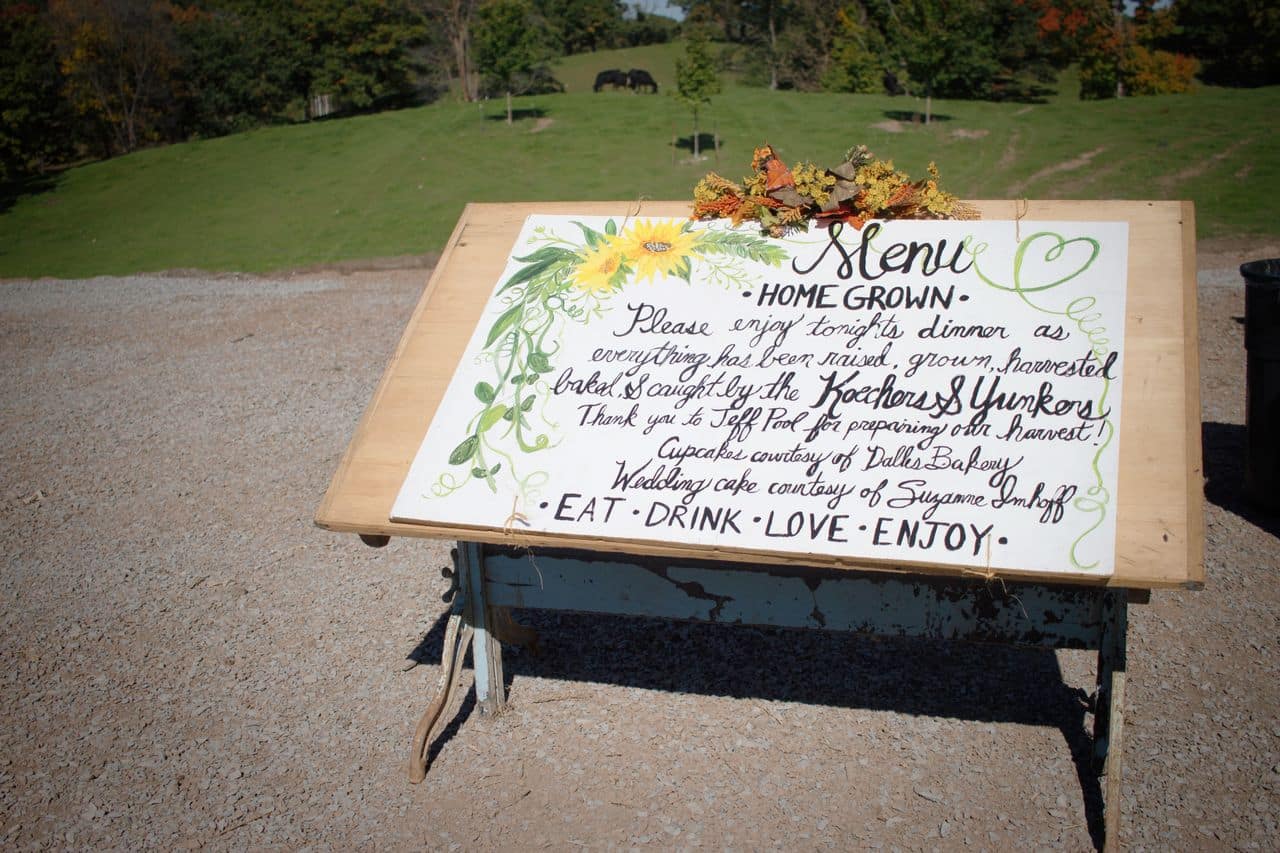 Menu
• HOME GROWN •
Please enjoy tonights dinner as
everything has been raised, grown, harvested
bakd, & caught by the Koechers & Yunkers
Thank you to Jeff Pool for preparing our harvest!
Cupcakes courtesy of Dalls Bakery
Wedding cake courtesy of Suzanne Imhoff
• EAT • DRINK • LOVE • ENJOY •